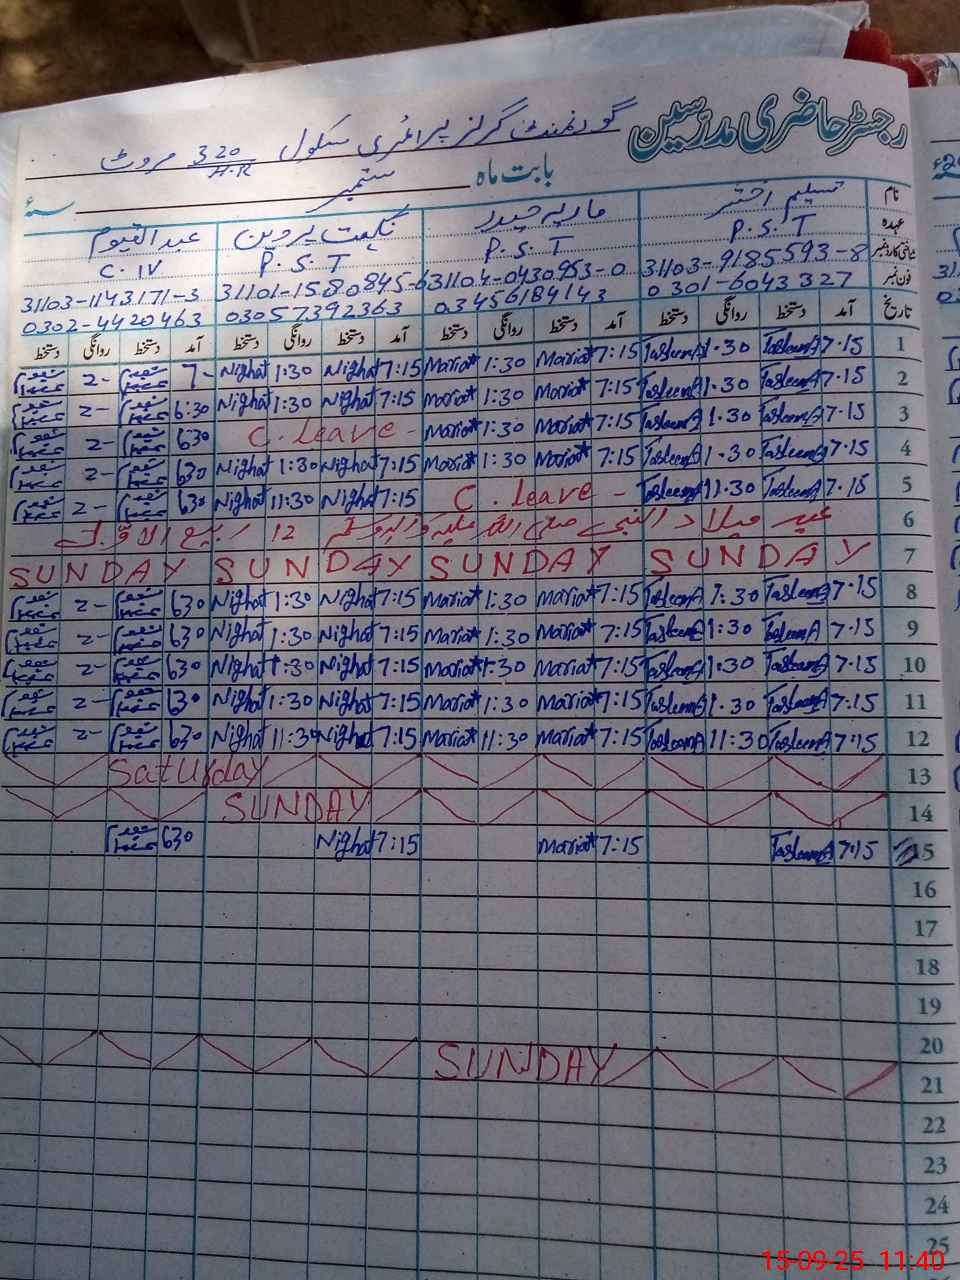 رجسٹر حاضری مدرّسین
گورنمنٹ گرلز پرائمری سکول 320/H.R مروٹ
بابت ماہ ستمبر سنہء
نام تسلیم اختر ماریہ حیدر نگہت پروین عبدالقیوم
عہدہ P.S.T P.S.T P.S.T C.IV
شناختی کارڈ نمبر 31103-9185593-8 31104-0430953-0 31101-1580845-6 31103-1143171-3
فون نمبر 0301-6043327 03456184143 03057392363 0302-4420463
تاریخ آمد دستخط روانگی دستخط آمد دستخط روانگی دستخط آمد دستخط روانگی دستخط آمد دستخط روانگی دستخط
1 7.15 TasleemA 1.30 TasleemA 7:15 Maria 1:30 Maria 7:15 Nighat 1:30 Nighat 7- 2-
2 7.15 TasleemA 1.30 TasleemA 7:15 Maria 1:30 Maria 7:15 Nighat 1:30 Nighat 6:30 2-
3 7.15 TasleemA 1.30 TasleemA 7:15 Maria 1:30 Maria C. leave - 630 2-
4 7.15 TasleemA 1.30 TasleemA 7:15 Maria 1:30 Maria 7:15 Nighat 1:30 Nighat 630 2-
5 7.15 TasleemA 11.30 TasleemA C. leave - 7:15 Nighat 11:30 Nighat 630 2-
6 عید میلاد النبی صلی اللہ علیہ وآلہ وسلم 12 ربیع الاوّل
7 SUNDAY SUNDAY SUNDAY SUNDAY
8 7.15 TasleemA 1.30 TasleemA 7:15 Maria 1:30 Maria 7:15 Nighat 1:30 Nighat 630 2-
9 7.15 TasleemA 1:30 TasleemA 7:15 Maria 1:30 Maria 7:15 Nighat 1:30 Nighat 630 2-
10 7.15 TasleemA 1.30 TasleemA 7:15 Maria 1:30 Maria 7:15 Nighat 1:30 Nighat 630 2-
11 7.15 TasleemA 1.30 TasleemA 7:15 Maria 1:30 Maria 7:15 Nighat 1:30 Nighat 630 2-
12 7:15 TasleemA 11:30 TasleemA 7:15 Maria 11:30 Maria 7:15 Nighat 11:30 Nighat 630 2-
13 Saturday
14 SUNDAY
15 7.15 TasleemA 7:15 Maria 7:15 Nighat 630
16
17
18
19
20
21 SUNDAY
22
23
24
25
15-09-25 11:40